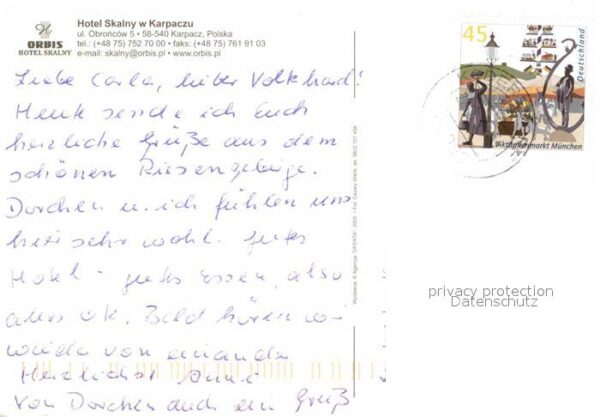 Hotel Skalny w Karpaczu
ul. Obrońców 5 • 58-540 Karpacz, Polska
tel.: (+48 75) 752 70 00 • faks: (+48 75) 761 91 03
e-mail: skalny@orbis.pl • www.orbis.pl
ORBIS
HOTEL SKALNY
Liebe Carla, lieber Volkhard!
Heute sende ich Euch
herzliche Grüße aus dem
schönen Riesengebirge.
Dorchen u. ich fühlen uns
hier sehr wohl. Gutes
Hotel - gutes Essen, also
alles ok. Bald hören wir
wieder von einander
Herzlichst
Von Dorchen auch ein Gruß
45
Deutschland
Viktualienmarkt München
privacy protection
Datenschutz